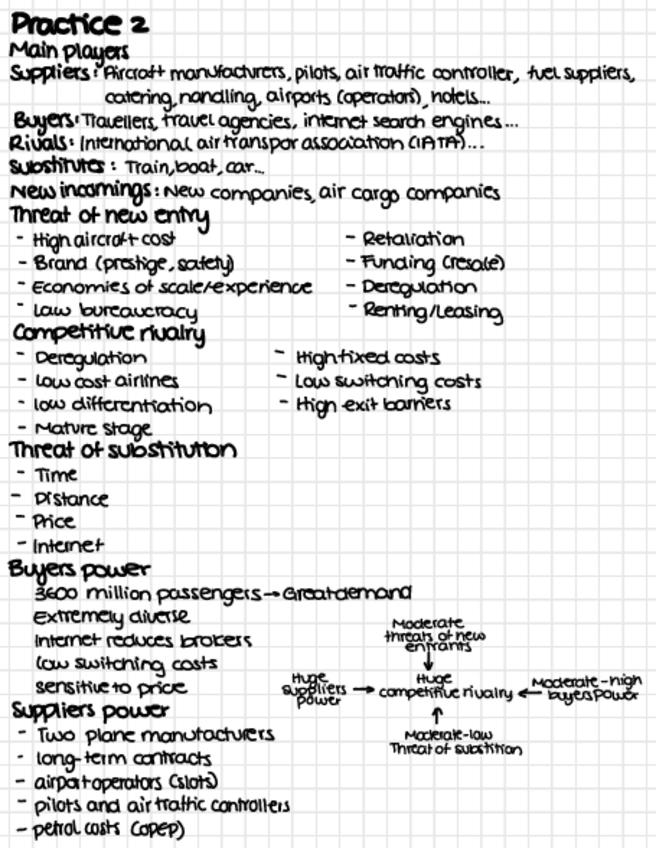 Practice 2
Main players
Suppliers: Aircraft manufacturers, pilots, air traffic controller, fuel suppliers,
catering, handling, airports (operators), hotels...
Buyers: Travellers, travel agencies, internet search engines...
Rivals: International air transpor association (IATA)...
Substitutes: Train, boat, car...
New incomings: New companies, air cargo companies
Threat of new entry
- High aircraft cost
- Brand (prestige, safety)
- Economies of scale/experience
- Law bureaucracy
- Retaliation
- Funding (resale)
- Deregulation
- Renting/Leasing
Competitive rivalry
- Deregulation
- Low cost airlines
- low differentiation
- Mature stage
- High fixed costs
- Low switching costs
- High exit barriers
Threat of substitution
- Time
- Distance
- Price
- Internet
Buyers power
3600 million passengers → Great demand
Extremely diverse
Internet reduces brokers
low switching costs
sensitive to price
Suppliers power
- Two plane manufacturers
- long-term contracts
- airport operators (slots)
- pilots and air traffic controllers
- petrol costs (opep)
Moderate
threats of new
entrants
↓
Huge
suppliers
power
→
Huge
competitive rivalry
←
Moderate-high
buyers power
↑
Moderate-low
Threat of substition